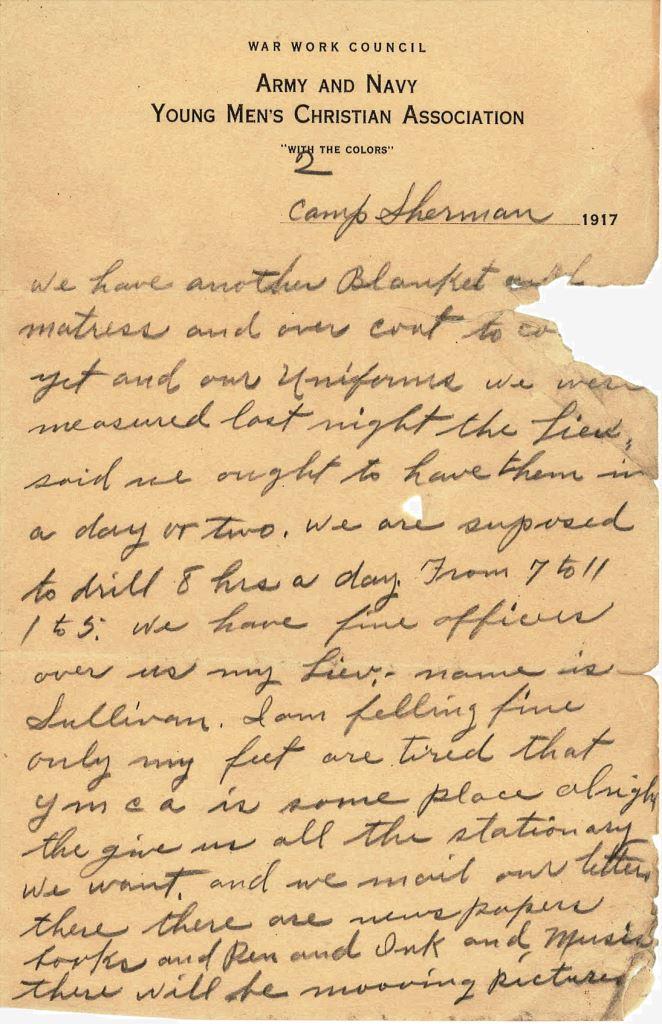 WAR WORK COUNCIL
ARMY AND NAVY
YOUNG MEN'S CHRISTIAN ASSOCIATION
"WITH THE COLORS"
2
Camp Sherman 1917
we have another Blanket and
matress and over coat to co
yet and our Uniforms we were
measured last night the Lieu,
said we ought to have them in
a day or two. We are suposed
to drill 8 hrs a day. From 7 to 11
1 to 5. We have fine officers
over us my Lieu,- name is
Sullivan. I am felling fine
only my feet are tired that
Y m c a is some place alright
the give us all the stationary
we want, and we mail our letters
there there are news papers
books and Pen and Ink and Music
there will be mooving pictures